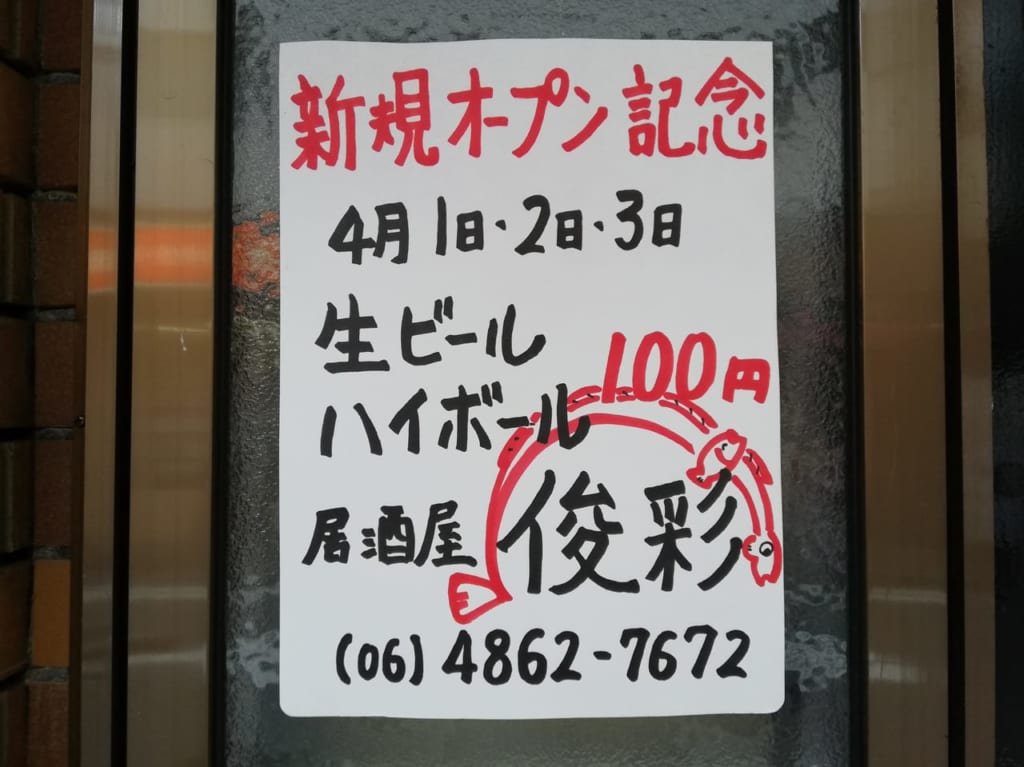 新規オープン記念
4月1日・2日・3日
生ビール
ハイボール 100円
居酒屋 俊彩
(06) 4862-7672